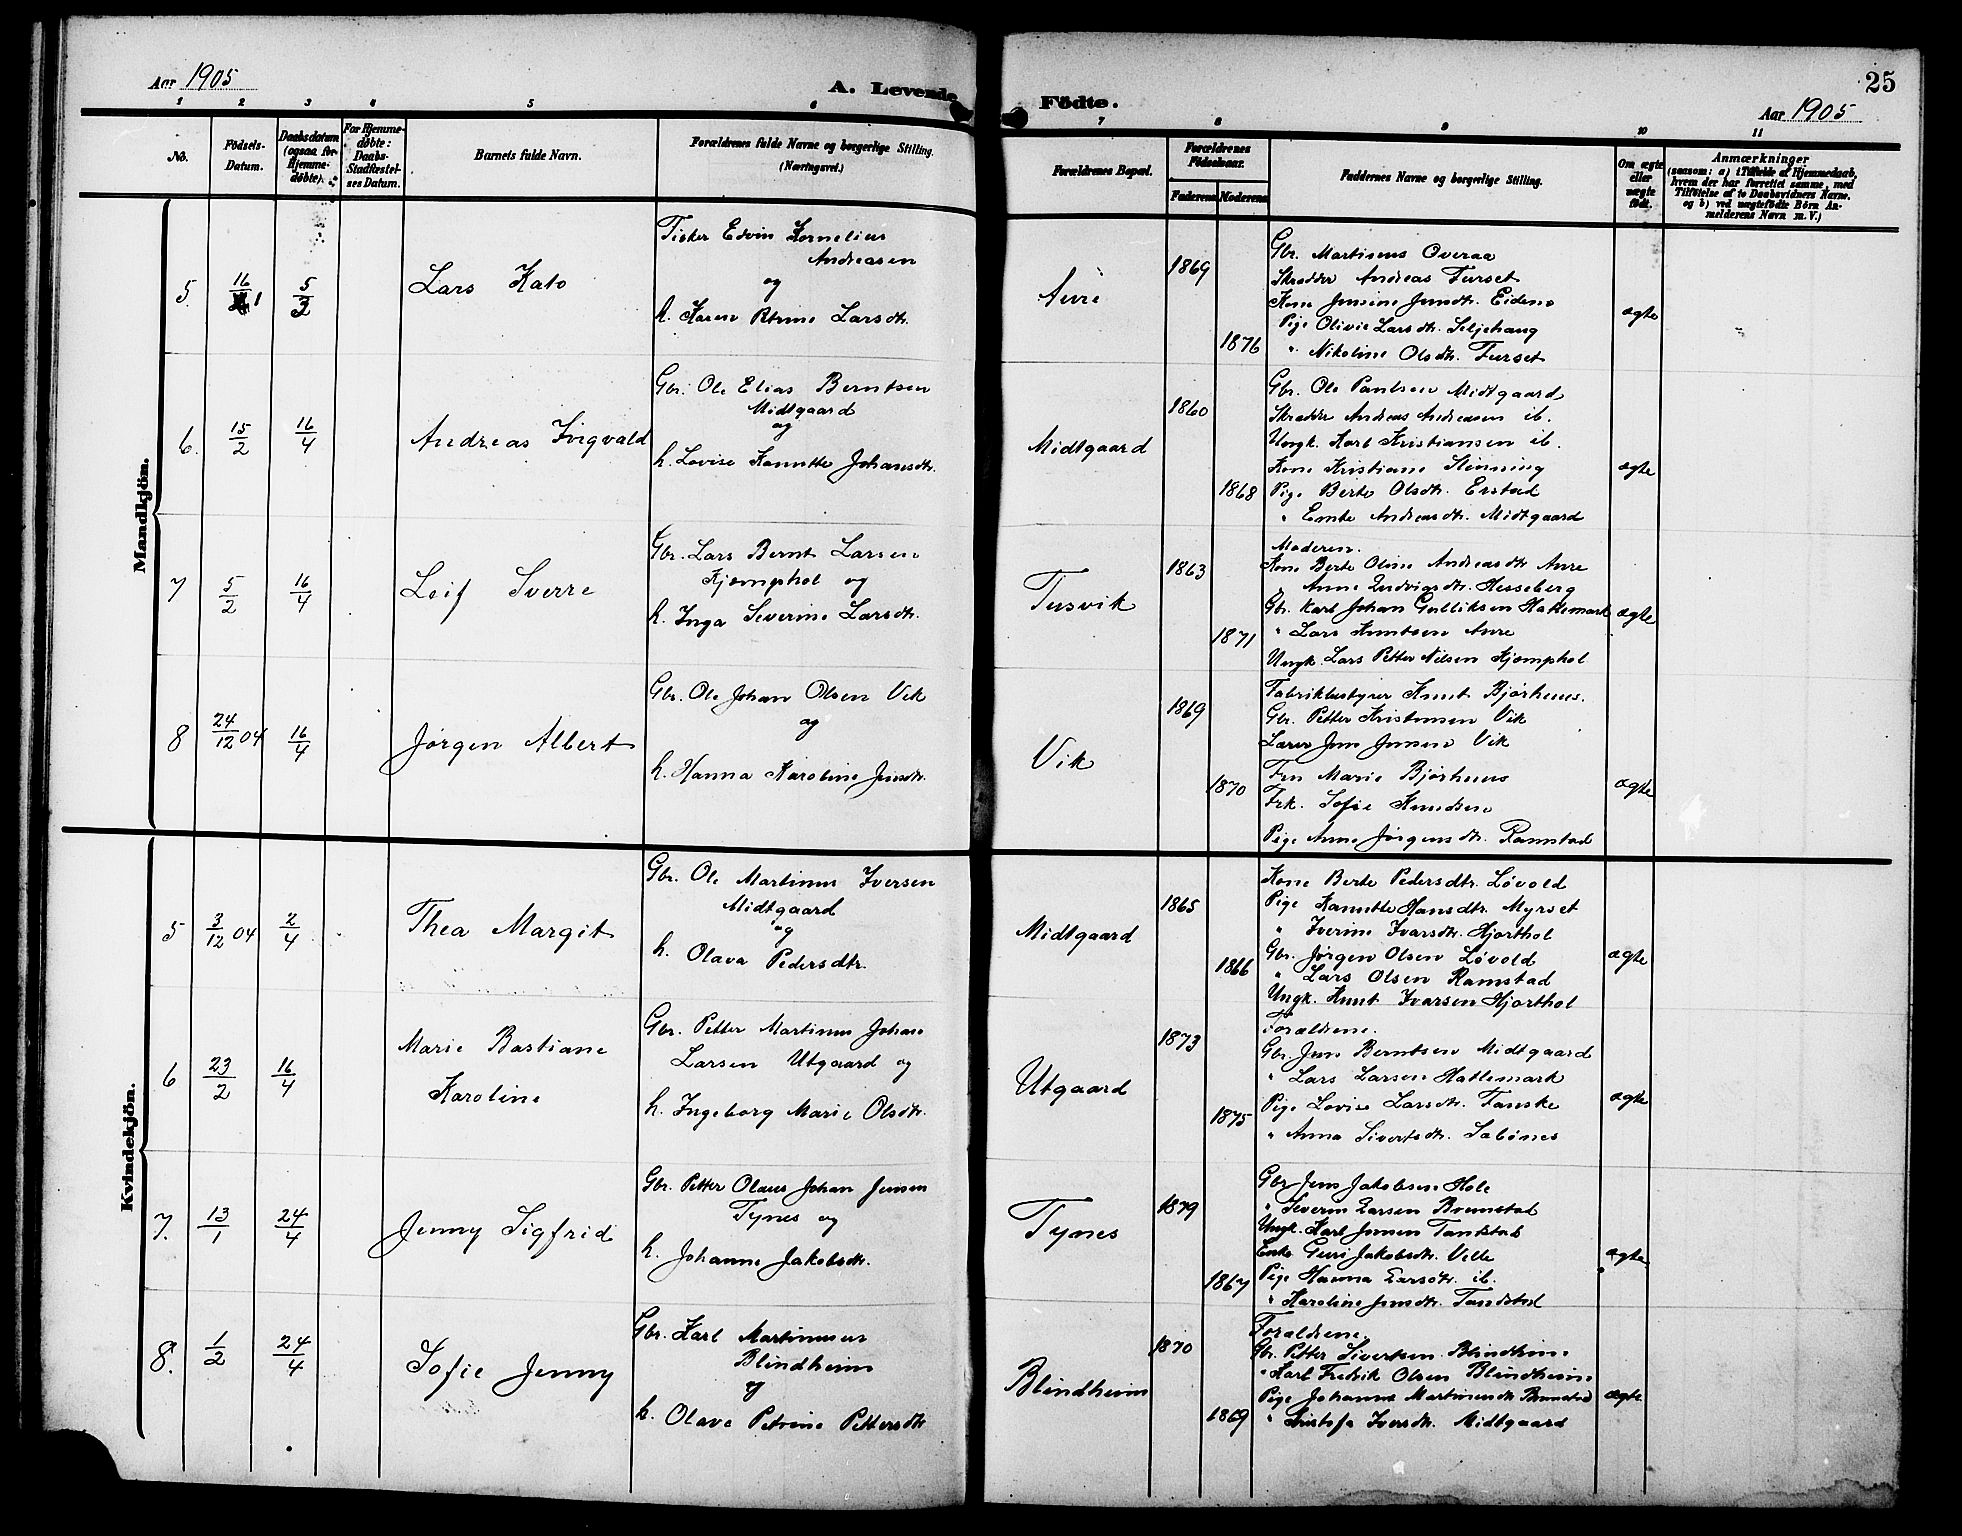 Aar 1905
A. Levende Födte.
25
Aar 1905
1 2 3 4 5 6 7 8 9 10 11
No.
Födsels-Datum.
Daabsdatum (ogsaa for Hjemme-döbte).
For Hjemme-döbte: Daabs-Stadfæstel-ses Datum.
Barnets fulde Navn.
Forældrenes fulde Navne og borgerlige Stilling. (Næringsvei.)
Forældrenes Bopæl.
Forældrenes Födselsaar.
Faderens Moderens
Faddernes Navne og borgerlige Stilling.
Om ægte eller uægte födt.
Anmærkninger
(saasom: a) i Tilfælde af Hjemmedaab, hvem der har forrettet samme, med Tilföielse af to Daabsvidners Navne, og b) ved uægtefödte Börn An-melderens Navn m. V.)
Mandkjön.
5. 16/1 5/3
Lars Kato
Fisker Edvin Kornelius
Andreasen
og
h. Karen Larsdtr.
Aure
1869
1876
Gbr. Martinus Overaa
Skrædder Andreas Furset
Kone Jensine Jensdtr. Eidem
Pige Olivie Larsdtr. Seljehaug
" Nikoline Olsdtr. Furset
ægte
6. 15/2 16/4
Andreas Ingvald
Gbr. Ole Elias Berntsen
Midtgaard
og
h. Lovise Kanutte Johansdtr.
Midtgaard
1860
1868
Gbr. Ole Paulsen Midtgaard
Skrædder Andreas Andreasen ib.
Ungk. Karl Kristiansen ib.
Kone Kristiane Stenning
Pige Berte Olsdtr. Erstad
" Andreasdtr. Midtgaard
ægte
7 5/2 16/4
Leif Sverre
Gbr. Lars Bernt Larsen
Kjæmphol og
h. Inga Severine Larsdtr.
Tusvik
1863
1871
Moderen.
Kone Berte Oline Andreasdtr Aure
" Anne Ludvigsdtr. Hesseberg
Gbr. Karl Johan Gulliksen Hatlemark
" Lars Knutsen Aure
Ungk. Lars Petter Nilsen Kjæmphol
ægte
8 24/12 04 16/4
Jørgen Albert
Gbr. Ole Johan Olsen Vik
og
h. Hanna Karoline Jensdtr.
Vik
1869
1870
Fabrikbestyrer Knut Bjørhuus.
Gbr. Petter Kristensen Vik
Lærer Jens Jensen Vik
Fru Marie Bjørhuus
Frk. Sofie Knudsen
Pige Anne Jørgensdtr. Ramstad
ægte
Kvindekjön.
5 3/12 04 2/4
Thea Margit
Gbr. Ole Martinus Iversen
Midtgaard
og
h. Olava Pedersdtr.
Midtgaard
1865
1866
Kone Berte Pedersdtr. Løvold
Pige Kanutte Hansdtr. Myrset
" Iverine Ivarsdtr. Hjorthol
Gbr. Jørgen Olsen Løvold
" Lars Olsen Ramstad
Ungk. Knut Ivarsen Hjorthol
ægte
6 23/2 16/4
Marie Bastiane
Karoline
Gbr. Petter Martinus Johan
Larsen Utgaard og
h. Ingeborg Marie Olsdtr.
Utgaard
1873
1875
Forældrene.
Gbr. Jens Berntsen Midtgaard
" Lars Larsen Hatlemark
Pige Lovise Larsdtr. Fauske
" Anna Sivertsdtr. Sæbønes
ægte
7. 13/1 24/4
Jenny Sigfrid
Gbr. Petter Olaus Johan Jensen
Tynes og
h. Johanne Jakobsdtr.
Tynes
1879
1867
Gbr Jens Jakobsen Hole
" Severin Larsen Brunstad
Ungk. Karl Jensen Tandstad
Enke Guri Jakobsdtr. Velle
Pige Hanna Larsdtr. ib.
" Karoline Jensdtr. Tandstad
ægte
8. 1/2 24/4
Sofie Jenny
Gbr. Karl Martinusen
Blindheim
og
h. Olave Petrine Pettersdtr
Blindheim
1870
1869
Forældrene.
Gbr. Petter Sivertsen Blindheim
" Karl Fredrik Olsen Blindheim
Pige Johanne Martinusdtr Brunstad
" Kristofa Iversdtr. Midtgaard
ægte